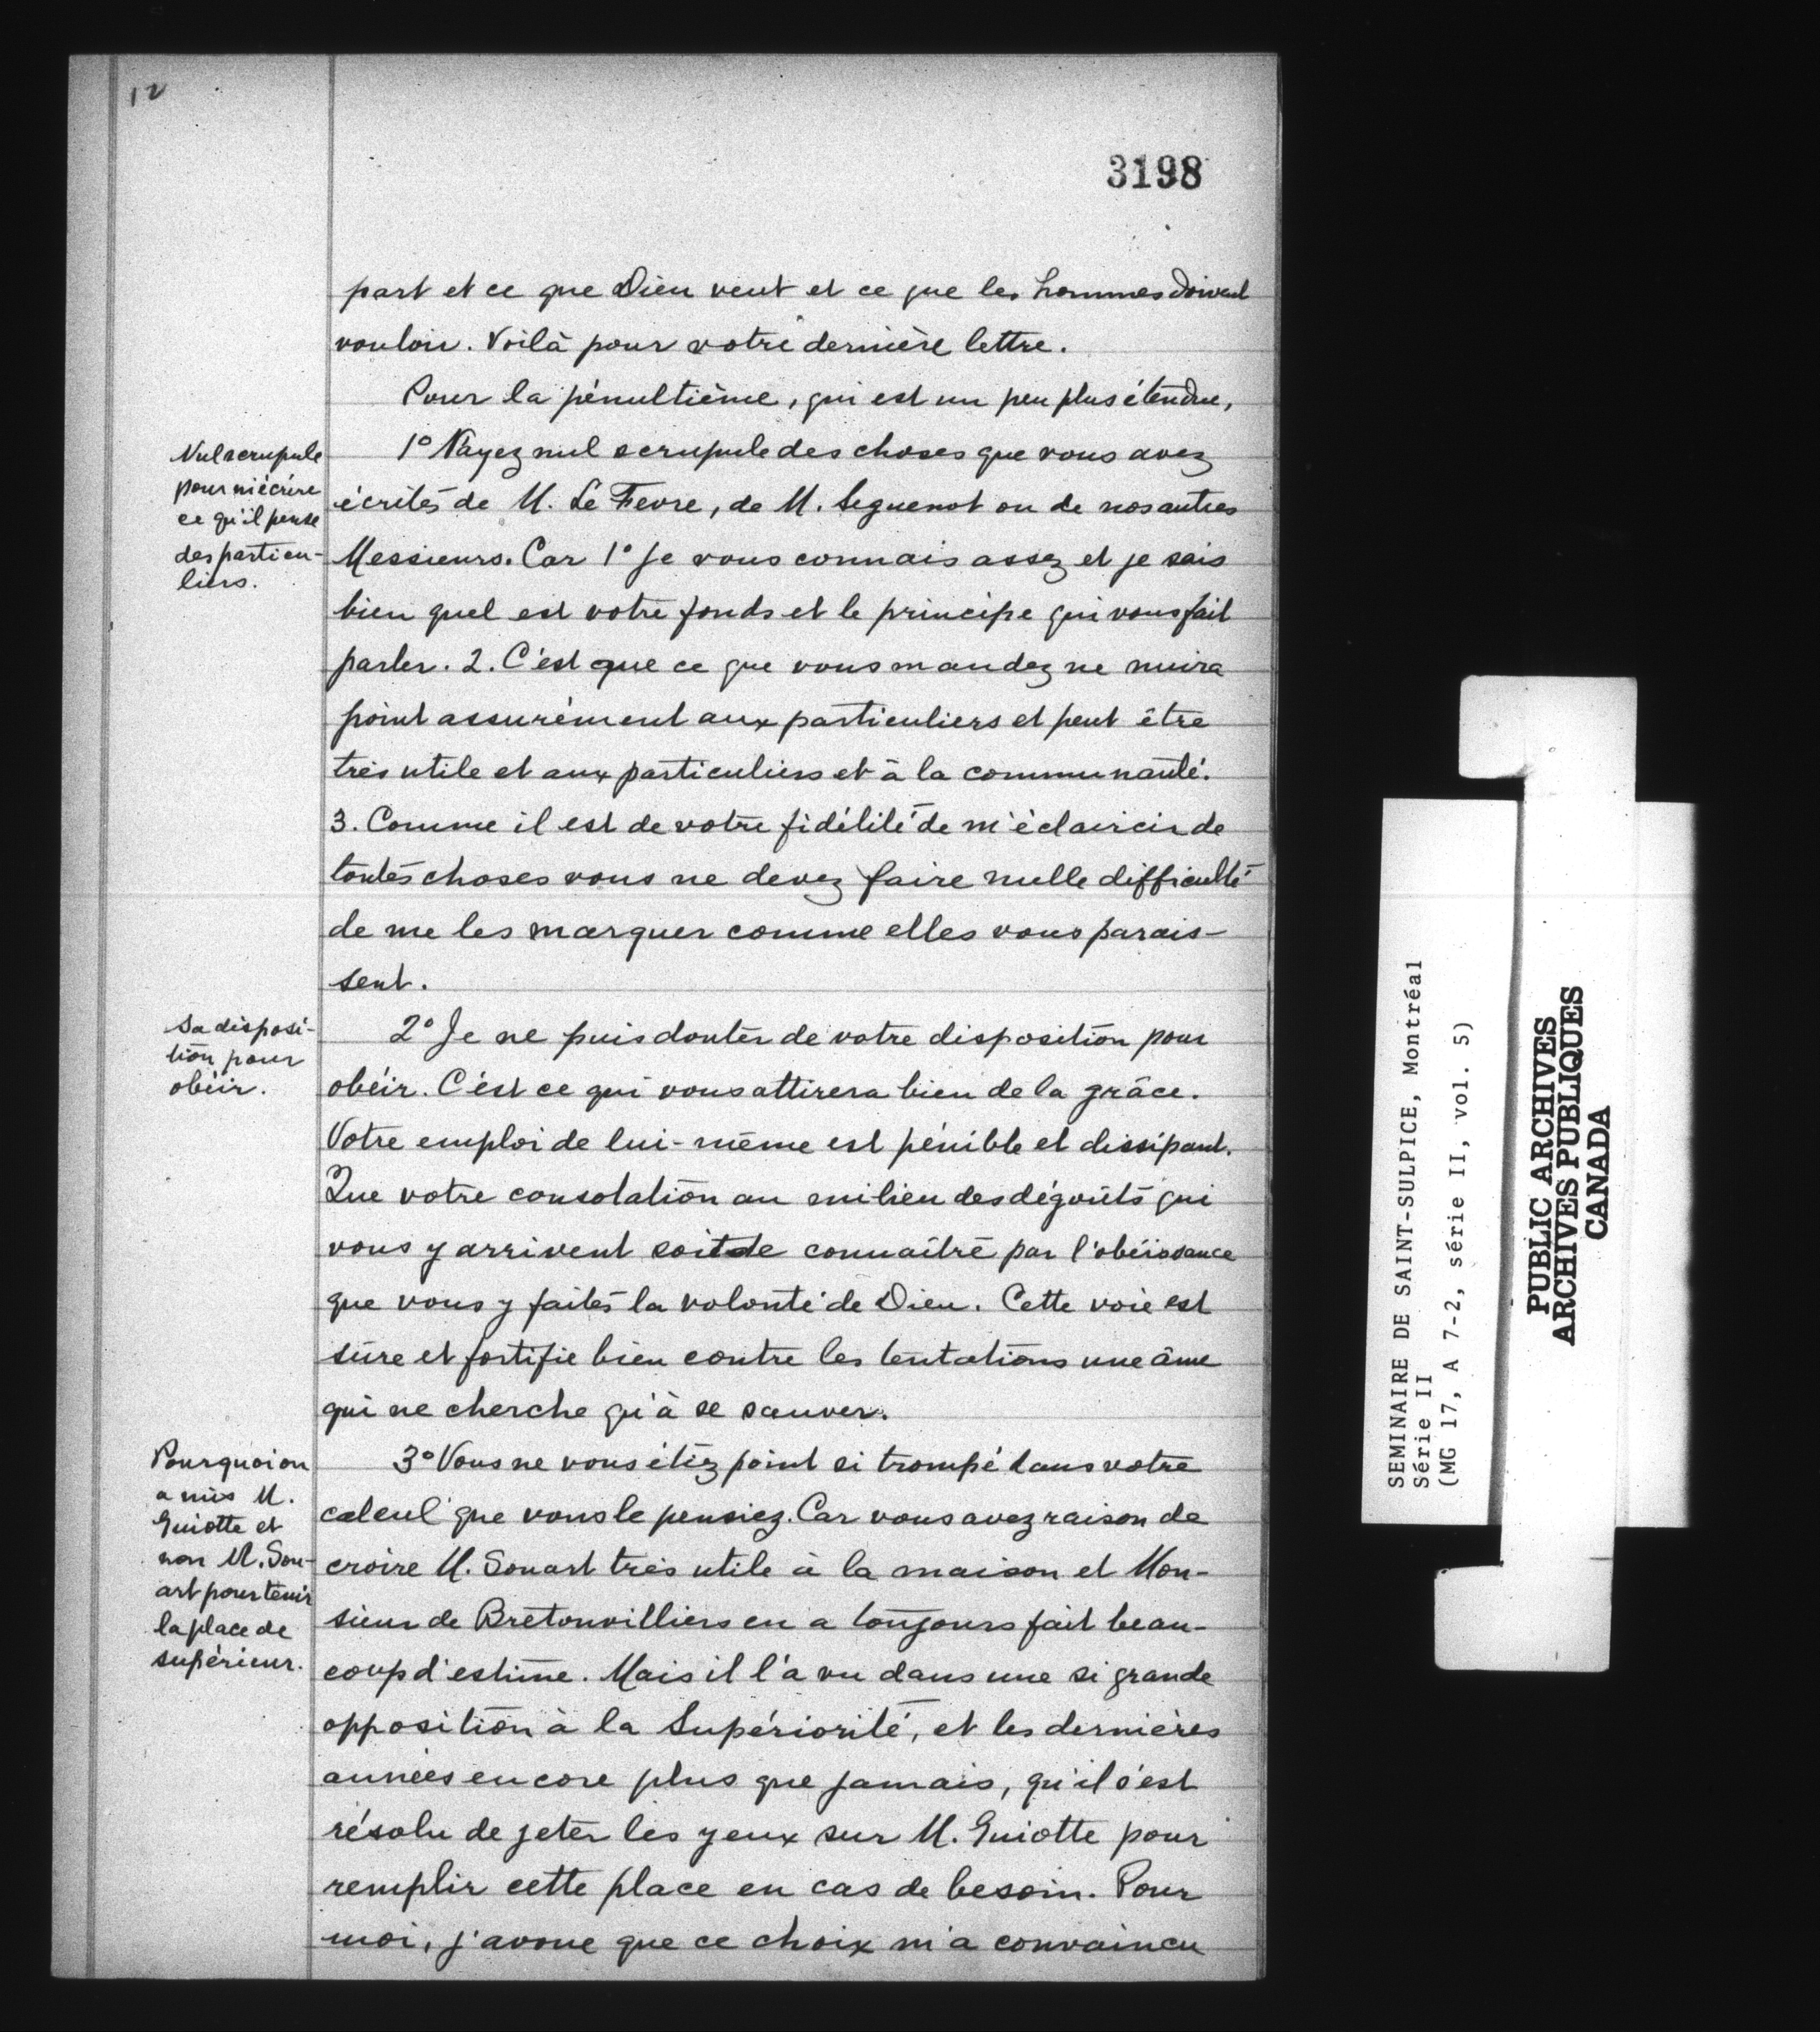 12
3198
part et ce que Dieu veut et ce que les hommes doivent
vouloir. Voilà pour votre dernière lettre.
Pour la pénultième, qui est un peu plus étendue,
Nul scrupule
pour m'écrire
ce qu'il pense
des particu-
liers.
1° N'ayez nul scrupule des choses que vous avez
écrites de M. Le Fevre, de M. Seguenot ou de nos autres
Messieurs. Car 1° Je vous connais assez et je sais
bien quel est votre fonds et le principe qui vous fait
parler. 2. C'est que ce que vous mandez ne nuira
point assurément aux particuliers et peut être
très utile et aux particuliers et à la communauté.
3. Comme il est de votre fidélité de m'éclaircir de
toutes choses vous ne devez faire nulle difficulté
de me les marquer comme elles vous parais-
sent.
Sa disposi-
tion pour
obéir.
2° Je ne puis douter de votre disposition pour
obéir. C'est ce qui vous attirera bien de la grâce.
Votre emploi de lui-même est pénible et dissipant.
Que votre consolation au milieu des dégoûts qui
vous y arrivent soit de connaître par l'obéissance
que vous y faites la volonté de Dieu. Cette voie est
sûre et fortifie bien contre les tentations une âme
qui ne cherche qu'à se sauver.
Pourquoi on
a mis M.
Guiotte et
non M. Sou-
art pour tenir
la place de
supérieur.
3° Vous ne vous étiez point si trompé dans votre
calcul que vous le pensiez. Car vous avez raison de
croire M. Souart très utile à la maison et Mon-
sieur de Bretonvilliers en a toujours fait beau-
coup d'estime. Mais il l'a vu dans une si grande
opposition à la Supériorité, et les dernières
années encore plus que jamais, qu'il s'est
résolu de jeter les yeux sur M. Guiotte pour
remplir cette place en cas de besoin. Pour
moi, j'avoue que ce choix m'a convaincu
SEMINAIRE DE SAINT-SULPICE, Montréal
Série II
(MG 17, A 7-2, série II, vol. 5)
PUBLIC ARCHIVES
ARCHIVES PUBLIQUES
CANADA